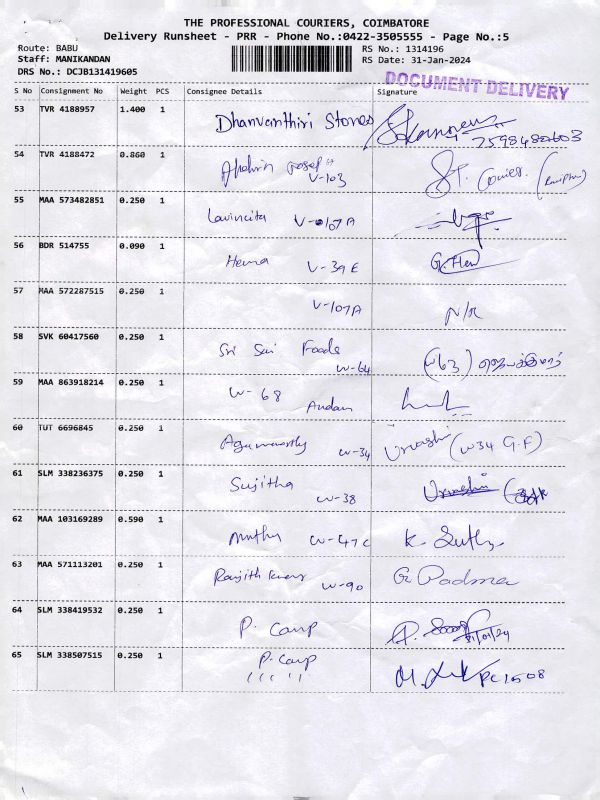 THE PROFESSIONAL COURIERS, COIMBATORE
Delivery Runsheet - PRR - Phone No.:0422-3505555 - Page No.:5
Route: BABU
RS No.: 1314196
Staff: MANIKANDAN
RS Date: 31-Jan-2024
DRS No.: DCJB131419605
DOCUMENT DELIVERY
S No Consignment No Weight PCS Consignee Details Signature
53 TVR 4188957 1.400 1 Dhanvanthiri Stones
7598480603
54 TVR 4188472 0.860 1 V-103 ST. Couries.
55 MAA 573482851 0.250 1 Lavincita V-107A
56 BDR 514755 0.090 1 Hema V-39E G. Hem
57 MAA 572287515 0.250 1 V-107A N/R
58 SVK 60417560 0.250 1 Sri Sai Foods W-64 (W63)
59 MAA 863918214 0.250 1 W-68 Andan
60 TUT 6696845 0.250 1 W-34 Urvashi (W34 G.F)
61 SLM 338236375 0.250 1 Sujitha W-38
62 MAA 103169289 0.590 1 Muthu W-47C K.
63 MAA 571113201 0.250 1 Ranjith Kumar W-90 G. Padma
64 SLM 338419532 0.250 1 P. Camp 31/01/24
65 SLM 338507515 0.250 1 P. Camp PC 1508